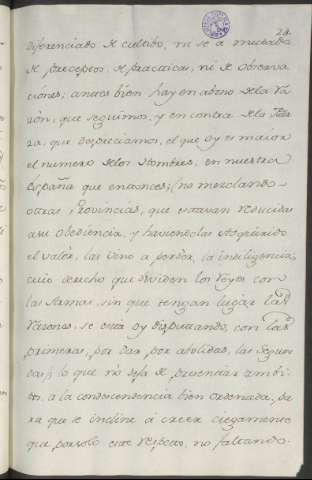 28.
diferenciado el cultibo, ni se a mudado
de preceptos, de practicas, ni de observa
ciones; antes bien hay en abono de la ra
zon, que seguimos, y en contra de la
que despreciamos, el que oy es maior
el numero de los Hombres, en nuestra
España que entonces; (no mezclando
otras Provincias, que estavan reducidas
a su obediencia, y haviendolas adquirido
el valor, las vino a perder, la inteligencia,
cuio derecho que dividen los Reyes con
las Armas, sin que tengan lugar las
razones, se está oy disputando, con las
primeras, por dar por abolidas, las segun
das; lo que no deja de presenciar
a la condescendencia bien ordenada, pa
ra que se incline á creer ciegamente
que por solo este respecto, no faltando